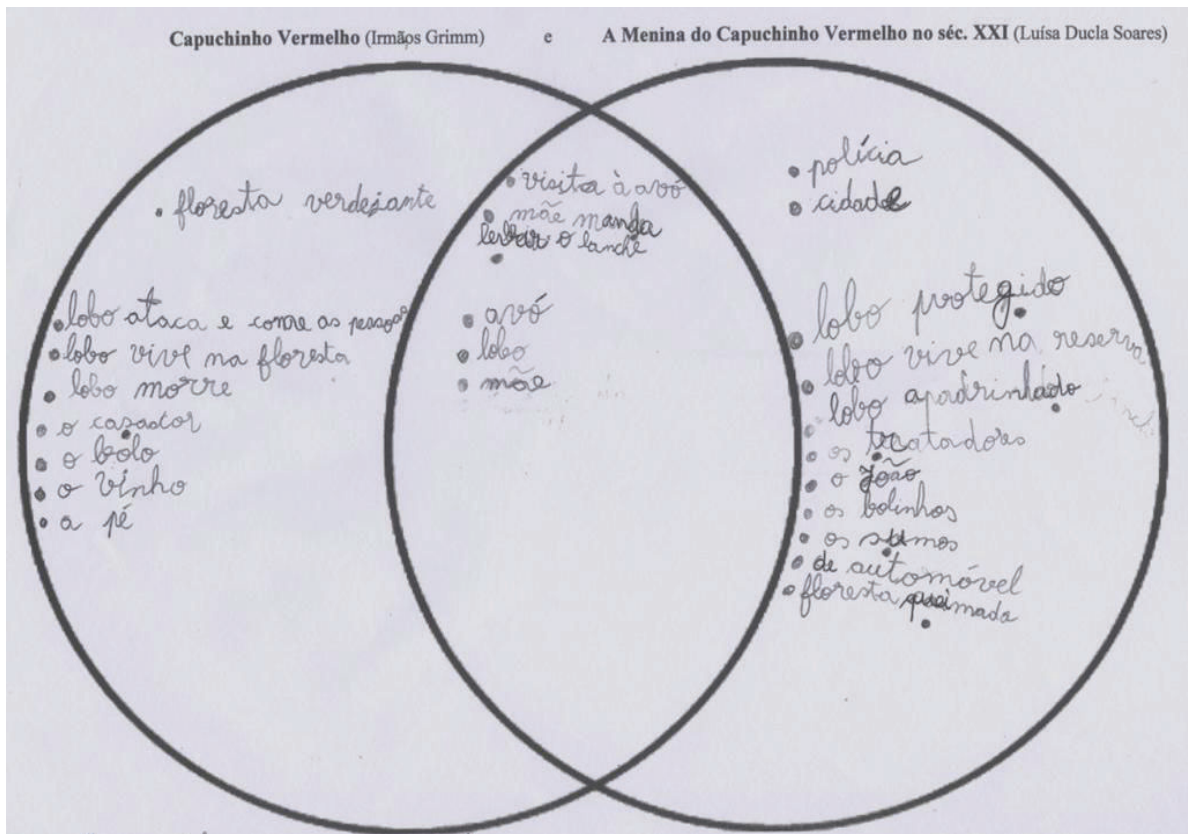 Capuchinho Vermelho (Irmãos Grimm) e A Menina do Capuchinho Vermelho no séc. XXI (Luísa Ducla Soares)
• floresta verdejante
• lobo ataca e come as pessoas
• lobo vive na floresta
• lobo morre
• o casador
• o bolo
• o vinho
• a pé
• visita à avó
• mãe manda
levar o lanche
•
• avó
• lobo
• mãe
• polícia
• cidade
• lobo protegido
• lobo vive na reserva
• lobo apadrinhado
• os tratadores
• o João
• os bolinhos
• os sumos
• de automóvel
• floresta queimada